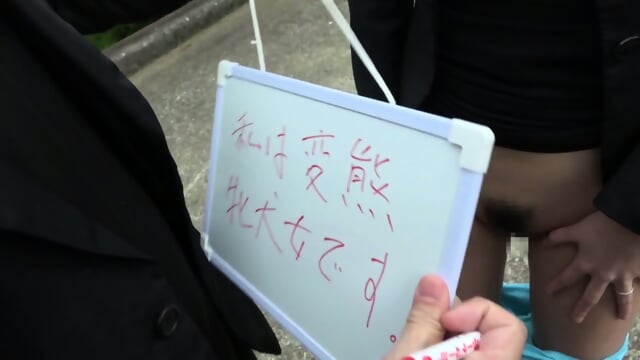 私は変態
牝犬女です。